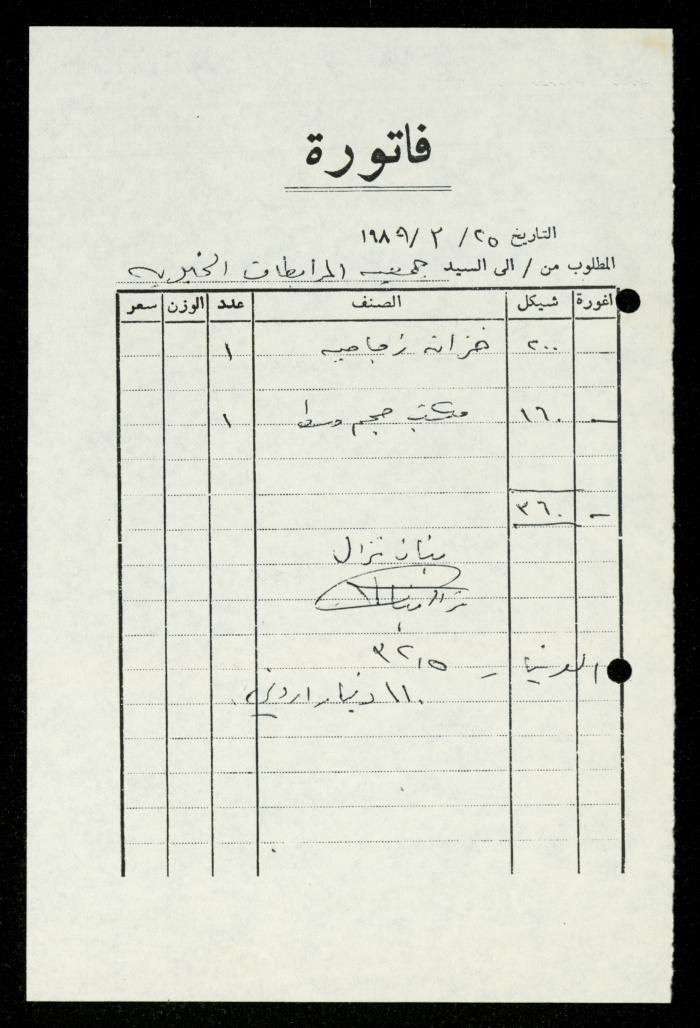 فاتورة
التاريخ ٢٥ / ٢ / ١٩٨٩
المطلوب من / الى السيد جمعيه المرابطات الخيريه
اغورة شيكل الصنف عدد الوزن سعر
— ٢٠٠ خزانه زجاجيه ١
— ١٦٠ مكتب حجم وسط ١
— ٣٦٠
نزال
٣٢,٥
١١٠ دينار اردني.